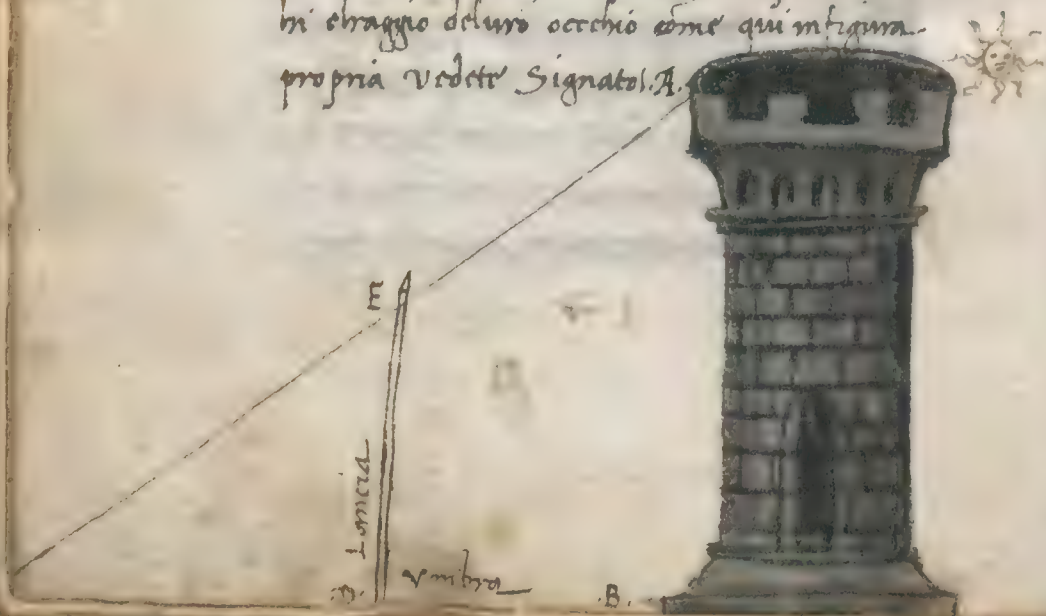 hi elraggio deluro occchio come qui infigura
propria vedete Signato .A.
E
Lancia
D. vmbra
.B.